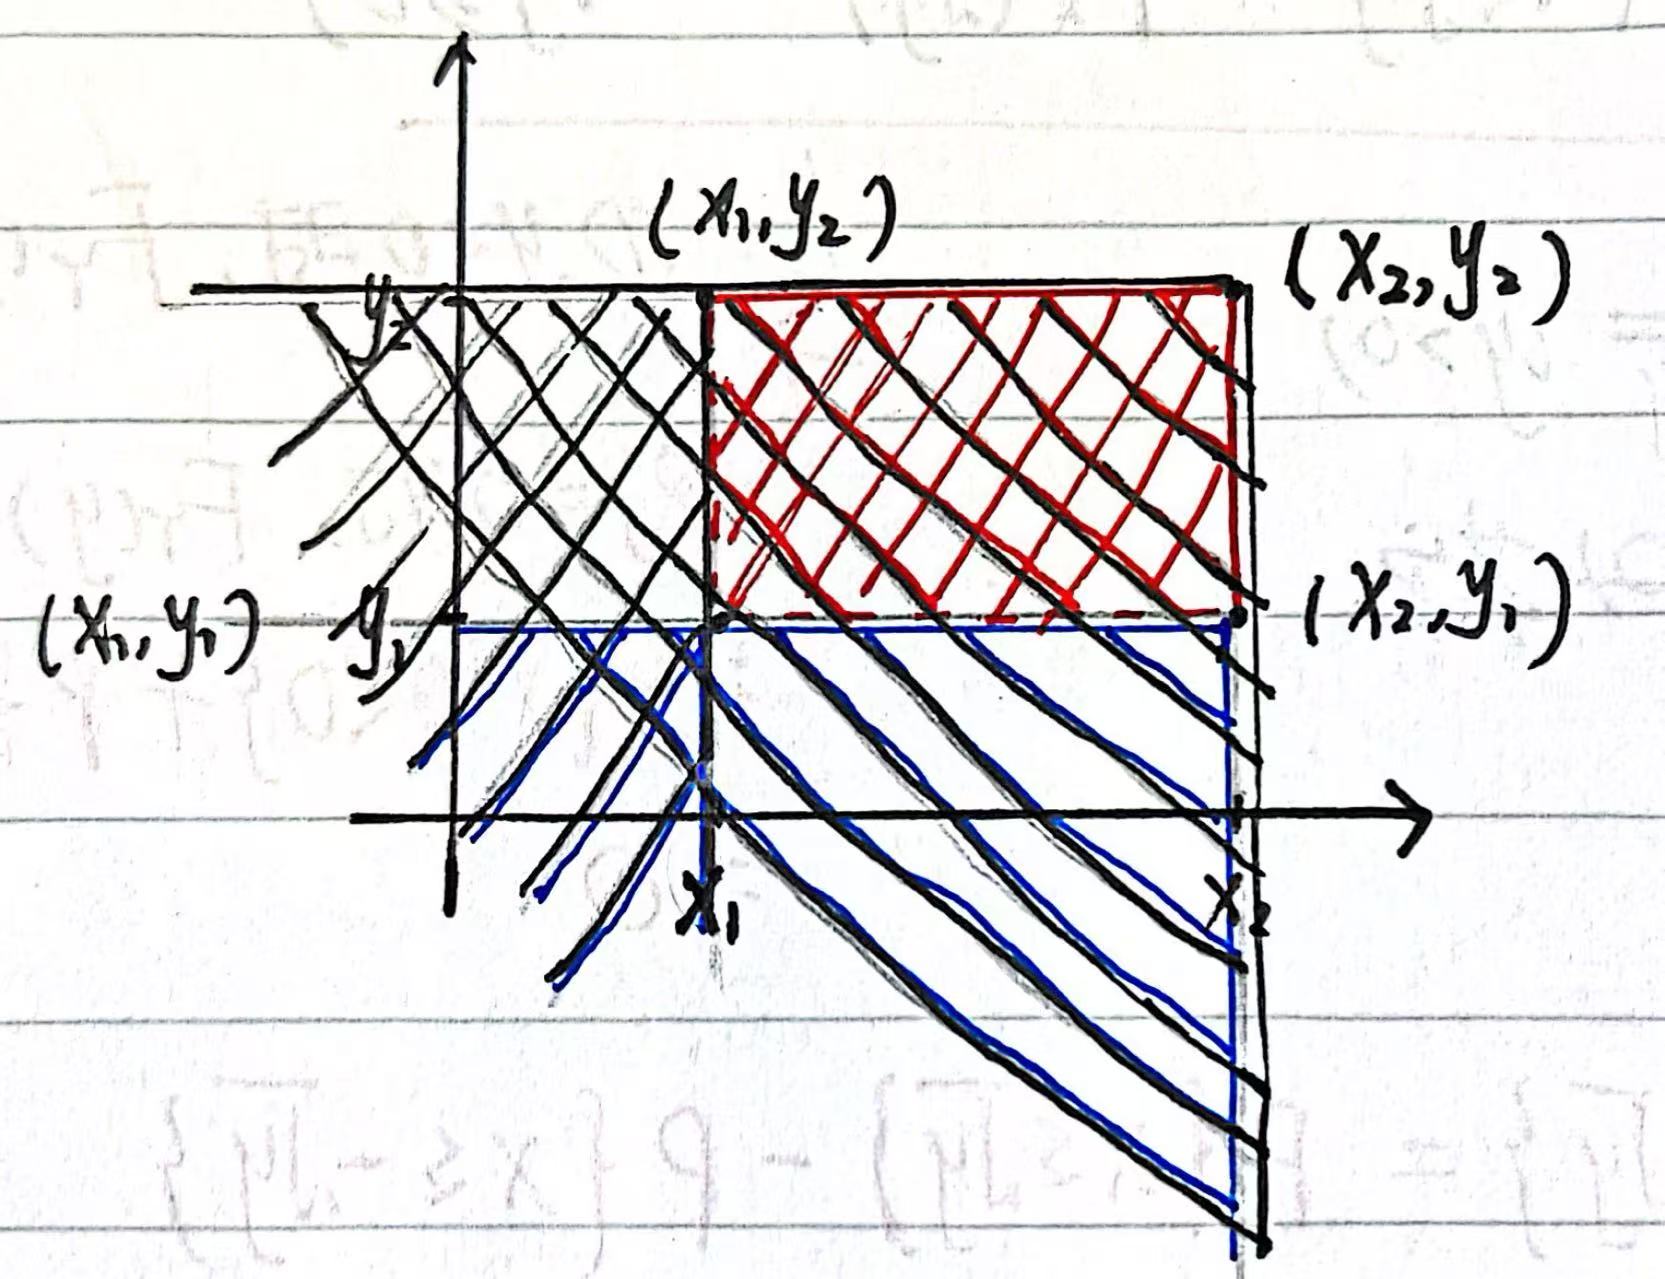 (x₁, y₂)
(x₂, y₂)
y₂
(x₁, y₁)
y₁
(x₂, y₁)
x₁
x₂